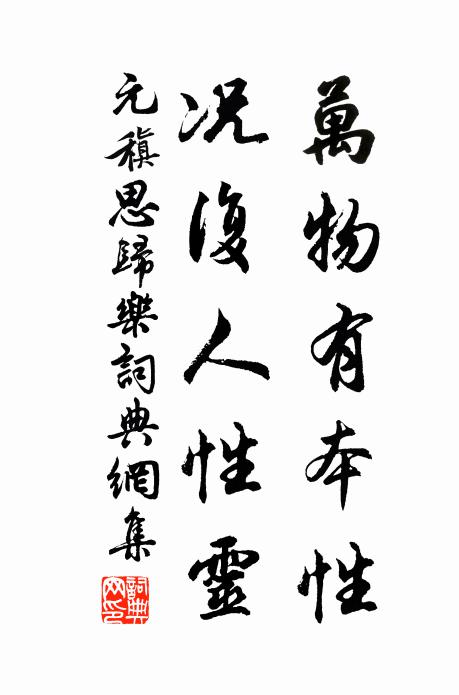 萬物有本性
況復人性靈
元稹思歸樂詞典網集
詞典網印